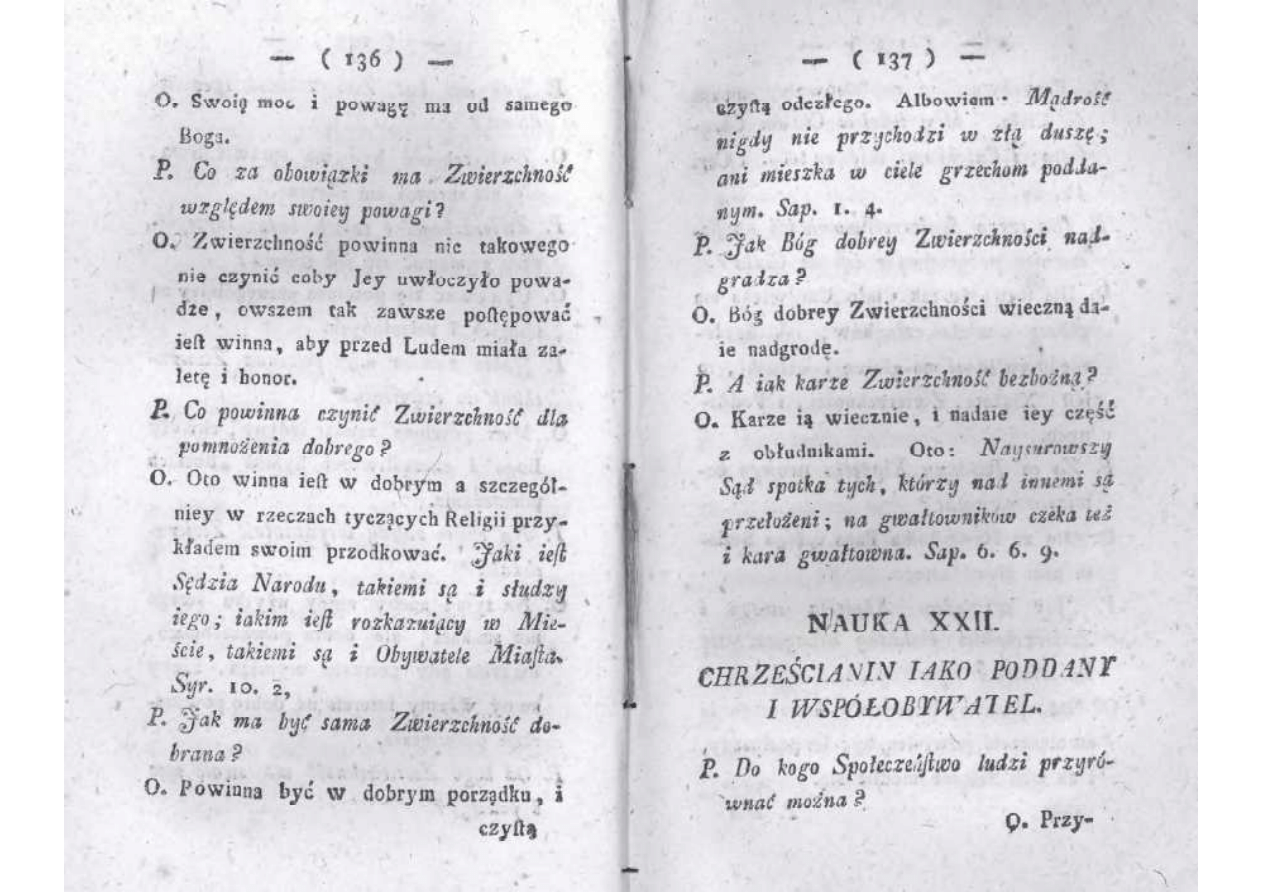 — ( 136 ) —
O. Swoią moc i powagę ma od samego
Boga.
P. Co za obowiązki ma Zwierzchność
względem swoiey powagi?
O. Zwierzchność powinna nic takowego
nie czynić coby Jey uwłoczyło powa-
dze, owszem tak zawsze poſtępować
ieſt winna, aby przed Ludem miała za-
letę i honor.
P. Co powinna czynić Zwierzchność dla
pomnożenia dobrego?
O. Oto winna ieſt w dobrym a szczegól-
niey w rzeczach tyczących Religii przy-
kładem swoim przodkować. Jaki ieſt
Sędzia Narodu, takiemi są i słudzy
iego; iakim ieſt rozkazuiący w Mie-
ście, takiemi są i Obywatele Miaſta.
Syr. 10. 2,
P. Jak ma być sama Zwierzchność do-
brana?
O. Powinna być w dobrym porządku, i
czyſtą
— ( 137 ) —
czyſtą odczłego. Albowiem Mądrość
nigdy nie przychodzi w złą duszę;
ani mieszka w ciele grzechom podda-
nym. Sap. 1. 4.
P. Jak Bóg dobrey Zwierzchności nad-
gradza?
O. Bóg dobrey Zwierzchności wieczną da-
ie nadgrodę.
P. A iak karze Zwierzchność bezbożną?
O. Karze ią wiecznie, i nadaie iey część
z obłudnikami. Oto: Naysurowszy
Sąd spotka tych, którzy nad innemi są
przełożeni; na gwałtowników czeka też
i kara gwałtowna. Sap. 6. 6. 9.
NAUKA XXII.
CHRZEŚCIANIN IAKO PODDANY
I WSPÓŁOBYWATEL.
P. Do kogo Społeczeńſtwo ludzi przyró-
wnać można?
O. Przy-